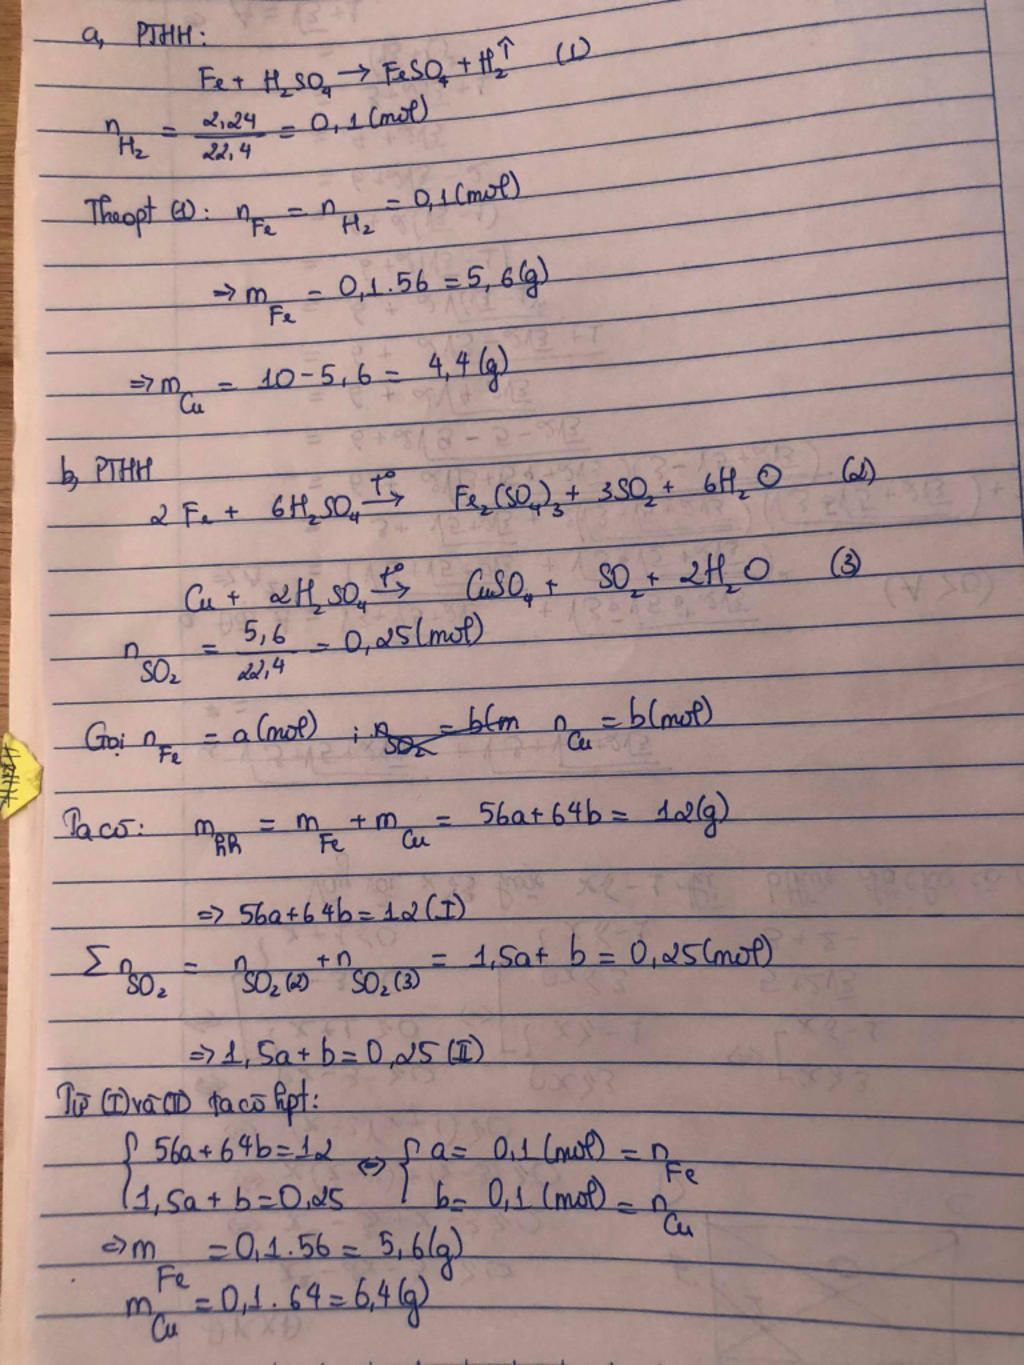 a, PTHH:
Fe + H₂SO₄ → FeSO₄ + H₂↑ (1)
n_H₂ = 2,24/22,4 = 0,1 (mol)
Theo pt (1): n_Fe = n_H₂ = 0,1 (mol)
⇒ m_Fe = 0,1.56 = 5,6 (g)
⇒ m_Cu = 10 - 5,6 = 4,4 (g)
b, PTHH
2Fe + 6H₂SO₄ →(t°) Fe₂(SO₄)₃ + 3SO₂ + 6H₂O (2)
Cu + 2H₂SO₄ →(t°) CuSO₄ + SO₂ + 2H₂O (3)
n_SO₂ = 5,6/22,4 = 0,25 (mol)
Gọi n_Fe = a (mol) ; n_SO₂ = b(m n_Cu = b (mol)
Ta có: m_hh = m_Fe + m_Cu = 56a + 64b = 12 (g)
⇒ 56a + 64b = 12 (I)
Σ n_SO₂ = n_SO₂(2) + n_SO₂(3) = 1,5a + b = 0,25 (mol)
⇒ 1,5a + b = 0,25 (II)
Từ (I) và (II) ta có hpt:
{ 56a + 64b = 12 ⇔ { a = 0,1 (mol) = n_Fe
{ 1,5a + b = 0,25 { b = 0,1 (mol) = n_Cu
⇒ m_Fe = 0,1.56 = 5,6 (g)
m_Cu = 0,1.64 = 6,4 (g)